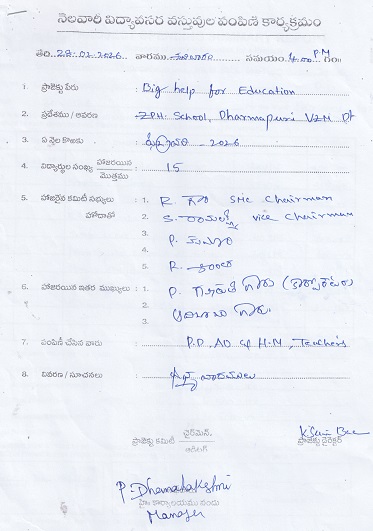 నెలవారీ విద్యావసర వస్తువుల పంపిణి కార్యక్రమం
తేది. 28.02.2026 వారము. శనివారం సమయం. 4.00 PM గం॥
1. ప్రాజెక్టు పేరు : Big help for Education
2. ప్రదేశము / ఆవరణ : ZPH. School, Dharmapuri VZM Dt
3. ఏ నెల కొఱకు : ఫిబ్రవరి - 2026
4. విద్యార్థుల సంఖ్య హాజరయిన మొత్తము : 15
5. హాజరైన కమిటీ సభ్యులు హోదాతో : 1. R. గౌరి SMC Chairman
2. S. రామలక్ష్మి Vice Chairman
3. P. కుమారి
4.
5. R. కాంతం
6. హాజరయిన ఇతర ముఖ్యులు : 1. P. గారు (కార్పొరేటర్)
2. గారు.
3.
7. పంపిణీ చేసిన వారు : P.D, AO, H.M, Teachers
8. వివరణ / సూచనలు :
ప్రాజెక్టు కమిటీ ఛైర్మెన్,
ప్రాజెక్టు డైరెక్టర్
P. Dhanalakshmi
Manager